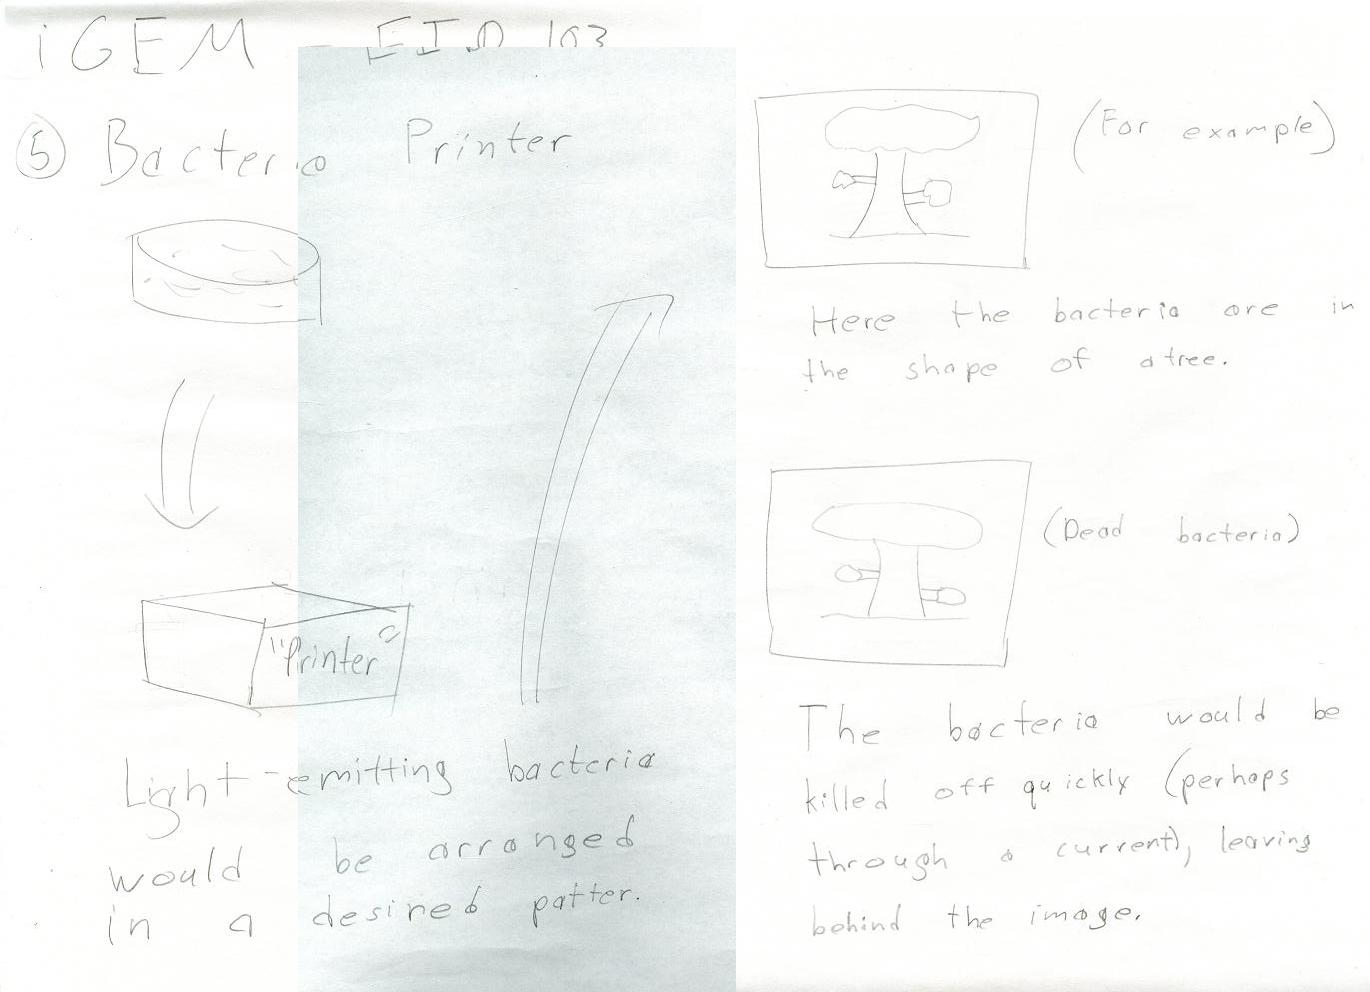 iGEM - EID 103
⑤ Bacteria Printer
"Printer"
Light-emitting bacteria
would be arranged
in a desired patter.
(For example)
Here the bacteria are in
the shape of a tree.
(Dead bacteria)
The bacteria would be
killed off quickly (perhaps
through a current), leaving
behind the image.